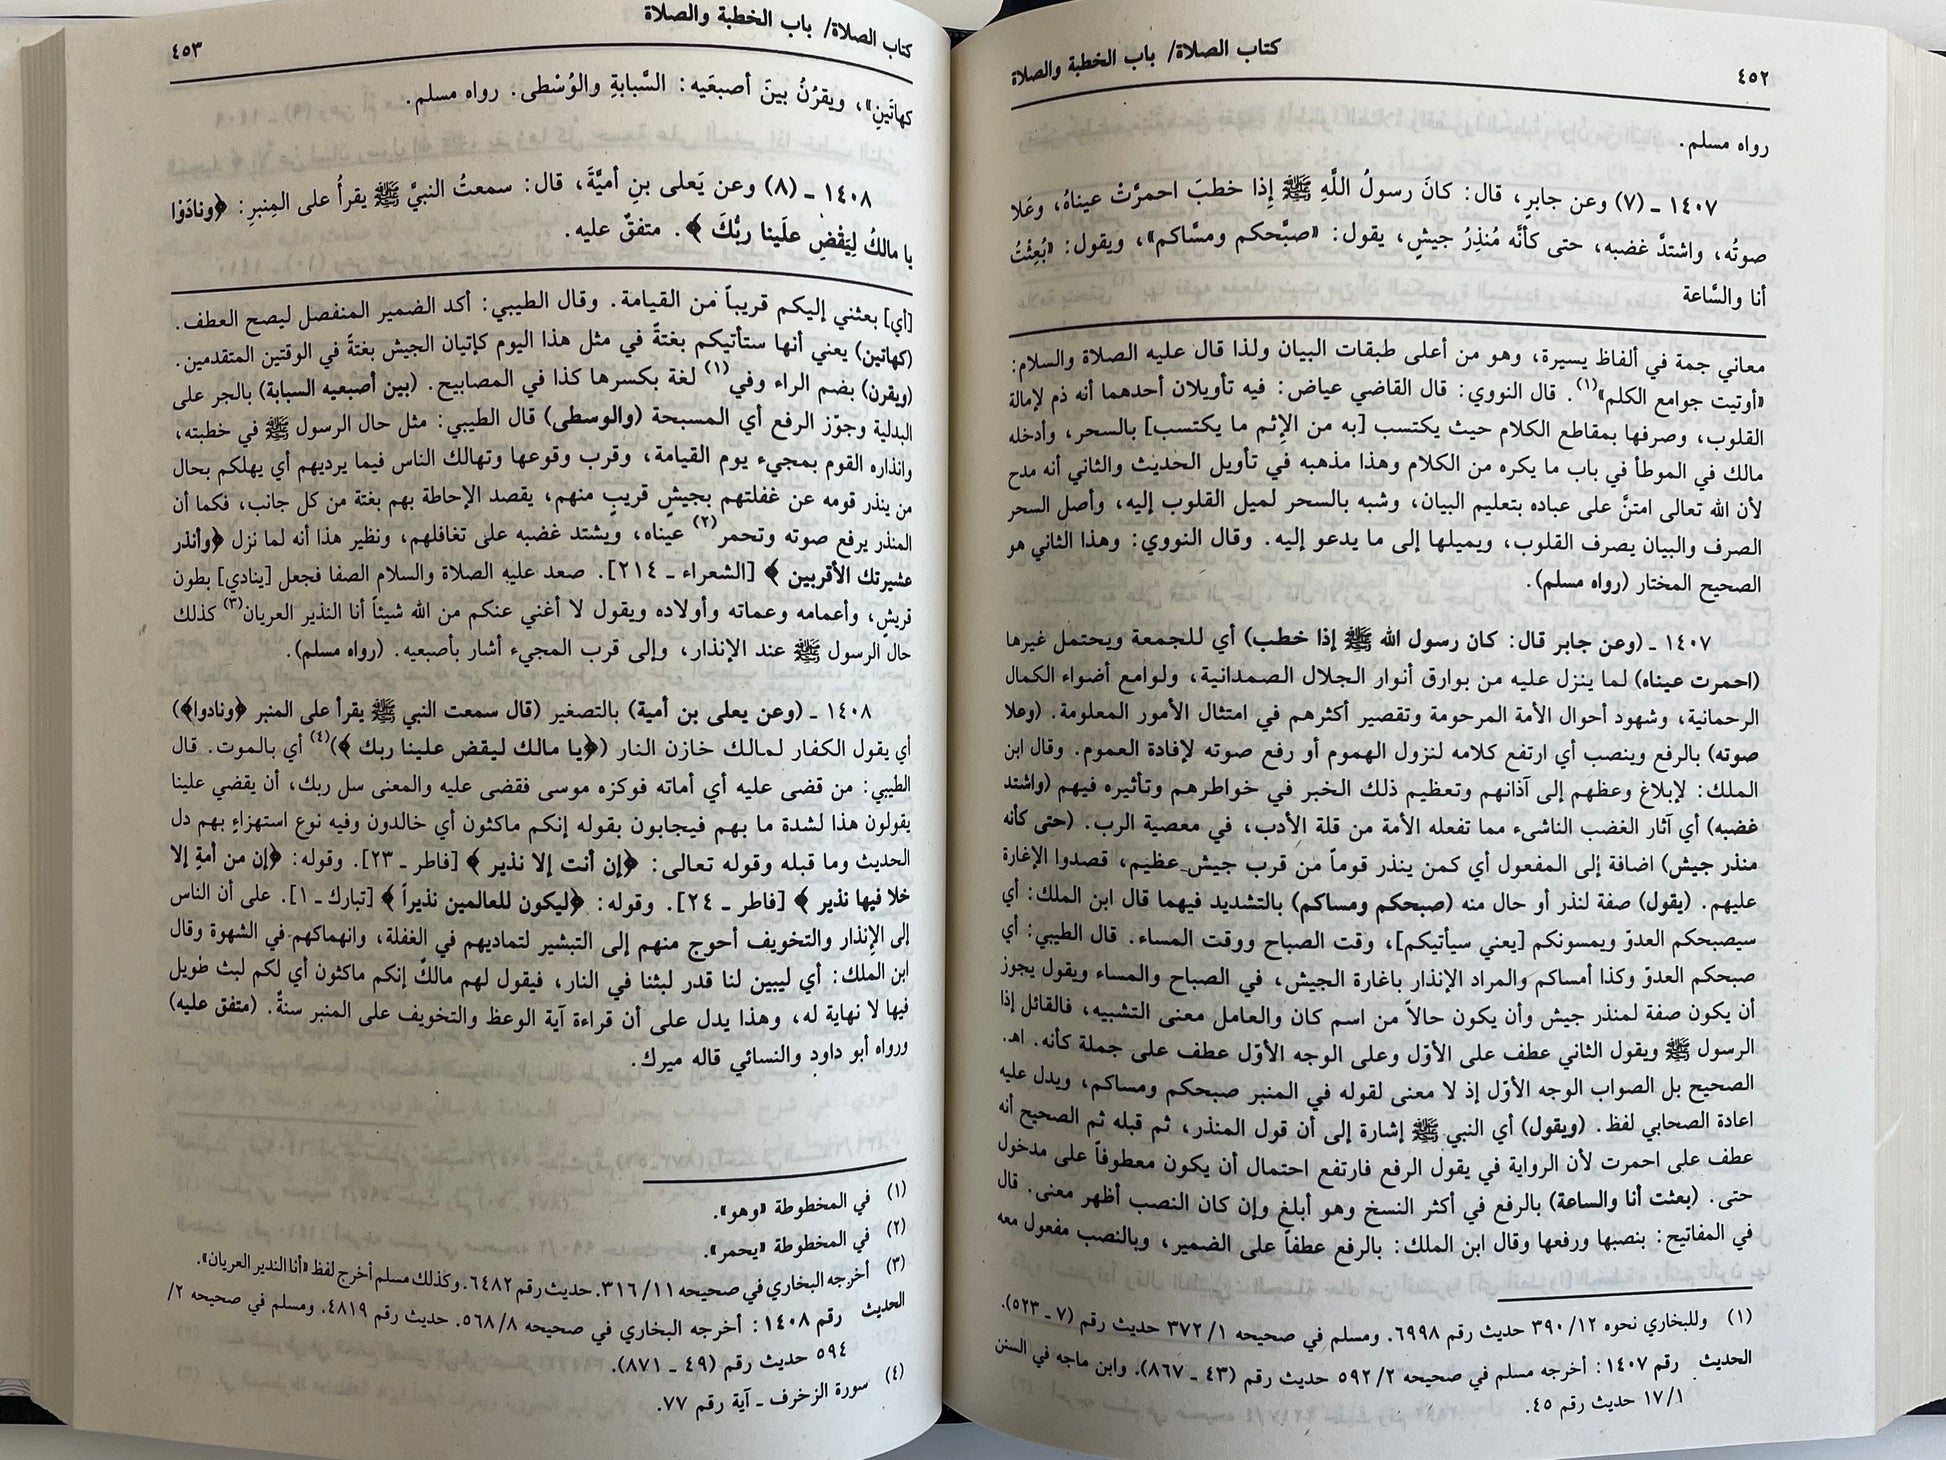 كتاب الصلاة/ باب الخطبة والصلاة
٤٥٢
رواه مسلم.
١٤٠٧ ـ (٧) وعن جابرٍ، قال: كانَ رسولُ اللَّهِ ﷺ إِذا خطبَ احمرَّتْ عيناهُ، وعَلا
صوتُه، واشتدَّ غضبه، حتى كأنَّه مُنذِرُ جيشٍ، يقول: «صبَّحكم ومسَّاكم»، ويقول: «بُعِثْتُ
أنا والسَّاعة
معاني جمة في ألفاظ يسيرة، وهو من أعلى طبقات البيان ولذا قال عليه الصلاة والسلام:
«أوتيت جوامع الكلم»(١). قال النووي: قال القاضي عياض: فيه تأويلان أحدهما أنه ذم لإمالة
القلوب، وصرفها بمقاطع الكلام حيث يكتسب [به من الإِثم ما يكتسب] بالسحر، وأدخله
مالك في الموطأ في باب ما يكره من الكلام وهذا مذهبه في تأويل الحديث والثاني أنه مدح
لأن الله تعالى امتنَّ على عباده بتعليم البيان، وشبه بالسحر لميل القلوب إليه، وأصل السحر
الصرف والبيان يصرف القلوب، ويميلها إلى ما يدعو إليه. وقال النووي: وهذا الثاني هو
الصحيح المختار (رواه مسلم).
١٤٠٧ ـ (وعن جابر قال: كان رسول الله ﷺ إذا خطب) أي للجمعة ويحتمل غيرها
(احمرت عيناه) لما ينزل عليه من بوارق أنوار الجلال الصمدانية، ولوامع أضواء الكمال
الرحمانية، وشهود أحوال الأمة المرحومة وتقصير أكثرهم في امتثال الأمور المعلومة. (وعلا
صوته) بالرفع وينصب أي ارتفع كلامه لنزول الهموم أو رفع صوته لإفادة العموم. وقال ابن
الملك: لإبلاغ وعظهم إلى آذانهم وتعظيم ذلك الخبر في خواطرهم وتأثيره فيهم (واشتد
غضبه) أي آثار الغضب الناشىء مما تفعله الأمة من قلة الأدب، في معصية الرب. (حتى كأنه
منذر جيش) اضافة إلى المفعول أي كمن ينذر قوماً من قرب جيش عظيم، قصدوا الإغارة
عليهم. (يقول) صفة لنذر أو حال منه (صبحكم ومساكم) بالتشديد فيهما قال ابن الملك: أي
سيصبحكم العدوّ ويمسونكم [يعني سيأتيكم]، وقت الصباح ووقت المساء. قال الطيبي: أي
صبحكم العدوّ وكذا أمساكم والمراد الإنذار باغارة الجيش، في الصباح والمساء ويقول يجوز
أن يكون صفة لمنذر جيش وأن يكون حالاً من اسم كان والعامل معنى التشبيه، فالقائل إذا
الرسول ﷺ ويقول الثاني عطف على الأوّل وعلى الوجه الأوّل عطف على جملة كأنه. اهـ.
الصحيح بل الصواب الوجه الأوّل إذ لا معنى لقوله في المنبر صبحكم ومساكم، ويدل عليه
اعادة الصحابي لفظ. (ويقول) أي النبي ﷺ إشارة إلى أن قول المنذر، ثم قبله ثم الصحيح أنه
عطف على احمرت لأن الرواية في يقول الرفع فارتفع احتمال أن يكون معطوفاً على مدخول
حتى. (بعثت أنا والساعة) بالرفع في أكثر النسخ وهو أبلغ وإن كان النصب أظهر معنى. قال
في المفاتيح: بنصبها ورفعها وقال ابن الملك: بالرفع عطفاً على الضمير، وبالنصب مفعول معه
(١) وللبخاري نحوه ١٢/ ٣٩٠ حديث رقم ٦٩٩٨. ومسلم في صحيحه ١/ ٣٧٢ حديث رقم (٧ ـ ٥٢٣).
الحديث رقم ١٤٠٧: أخرجه مسلم في صحيحه ٢/ ٥٩٢ حديث رقم (٤٣ ـ ٨٦٧). وابن ماجه في السنن
١/ ١٧ حديث رقم ٤٥.
كتاب الصلاة/ باب الخطبة والصلاة
٤٥٣
كهاتَينِ»، ويقرُنُ بينَ أصبعَيه: السَّبابةِ والوُسْطى. رواه مسلم.
١٤٠٨ ـ (٨) وعن يَعلى بنِ أميَّةَ، قال: سمعتُ النبيَّ ﷺ يقرأُ على المِنبرِ: ﴿ونادَوْا
يا مالكُ لِيَقْضِ علَينا ربُّكَ ﴾. متفقٌ عليه.
[أي] بعثني إليكم قريباً من القيامة. وقال الطيبي: أكد الضمير المنفصل ليصح العطف.
(كهاتين) يعني أنها ستأتيكم بغتةً في مثل هذا اليوم كإتيان الجيش بغتةً في الوقتين المتقدمين.
(ويقرن) بضم الراء وفي(١) لغة بكسرها كذا في المصابيح. (بين أصبعيه السبابة) بالجر على
البدلية وجوّز الرفع أي المسبحة (والوسطى) قال الطيبي: مثل حال الرسول ﷺ في خطبته،
وانذاره القوم بمجيء يوم القيامة، وقرب وقوعها وتهالك الناس فيما يرديهم أي يهلكم بحال
من ينذر قومه عن غفلتهم بجيشٍ قريبٍ منهم، يقصد الإحاطة بهم بغتة من كل جانب، فكما أن
المنذر يرفع صوته وتحمر(٢) عيناه، ويشتد غضبه على تغافلهم، ونظير هذا أنه لما نزل ﴿وأنذر
عشيرتك الأقربين ﴾ [الشعراء ـ ٢١٤]. صعد عليه الصلاة والسلام الصفا فجعل [ينادي] بطون
قريشٍ، وأعمامه وعماته وأولاده ويقول لا أغني عنكم من الله شيئاً أنا النذير العريان(٣) كذلك
حال الرسول ﷺ عند الإنذار، وإلى قرب المجيء أشار بأصبعيه. (رواه مسلم).
١٤٠٨ ـ (وعن يعلى بن أمية) بالتصغير (قال سمعت النبي ﷺ يقرأ على المنبر ﴿ونادوا﴾)
أي يقول الكفار لمالك خازن النار (﴿يا مالك ليقض علينا ربك ﴾)(٤) أي بالموت. قال
الطيبي: من قضى عليه أي أماته فوكزه موسى فقضى عليه والمعنى سل ربك، أن يقضي علينا
يقولون هذا لشدة ما بهم فيجابون بقوله إنكم ماكثون أي خالدون وفيه نوع استهزاءٍ بهم دل
الحديث وما قبله وقوله تعالى: ﴿إن أنت إلا نذير ﴾ [فاطر ـ ٢٣]. وقوله: ﴿إن من أمةٍ إلا
خلا فيها نذير ﴾ [فاطر ـ ٢٤]. وقوله: ﴿ليكون للعالمين نذيراً ﴾ [تبارك ـ ١]. على أن الناس
إلى الإنذار والتخويف أحوج منهم إلى التبشير لتماديهم في الغفلة، وانهماكهم في الشهوة وقال
ابن الملك: أي ليبين لنا قدر لبثنا في النار، فيقول لهم مالكٌ إنكم ماكثون أي لكم لبث طويل
فيها لا نهاية له، وهذا يدل على أن قراءة آية الوعظ والتخويف على المنبر سنةٌ. (متفق عليه)
ورواه أبو داود والنسائي قاله ميرك.
(١) في المخطوطة «وهو».
(٢) في المخطوطة «يحمر».
(٣) أخرجه البخاري في صحيحه ١١/ ٣١٦. حديث رقم ٦٤٨٢. وكذلك مسلم أخرج لفظ «أنا النذير العريان».
الحديث رقم ١٤٠٨: أخرجه البخاري في صحيحه ٨/ ٥٦٨. حديث رقم ٤٨١٩. ومسلم في صحيحه ٢/
٥٩٤ حديث رقم (٤٩ ـ ٨٧١).
(٤) سورة الزخرف ـ آية رقم ٧٧.